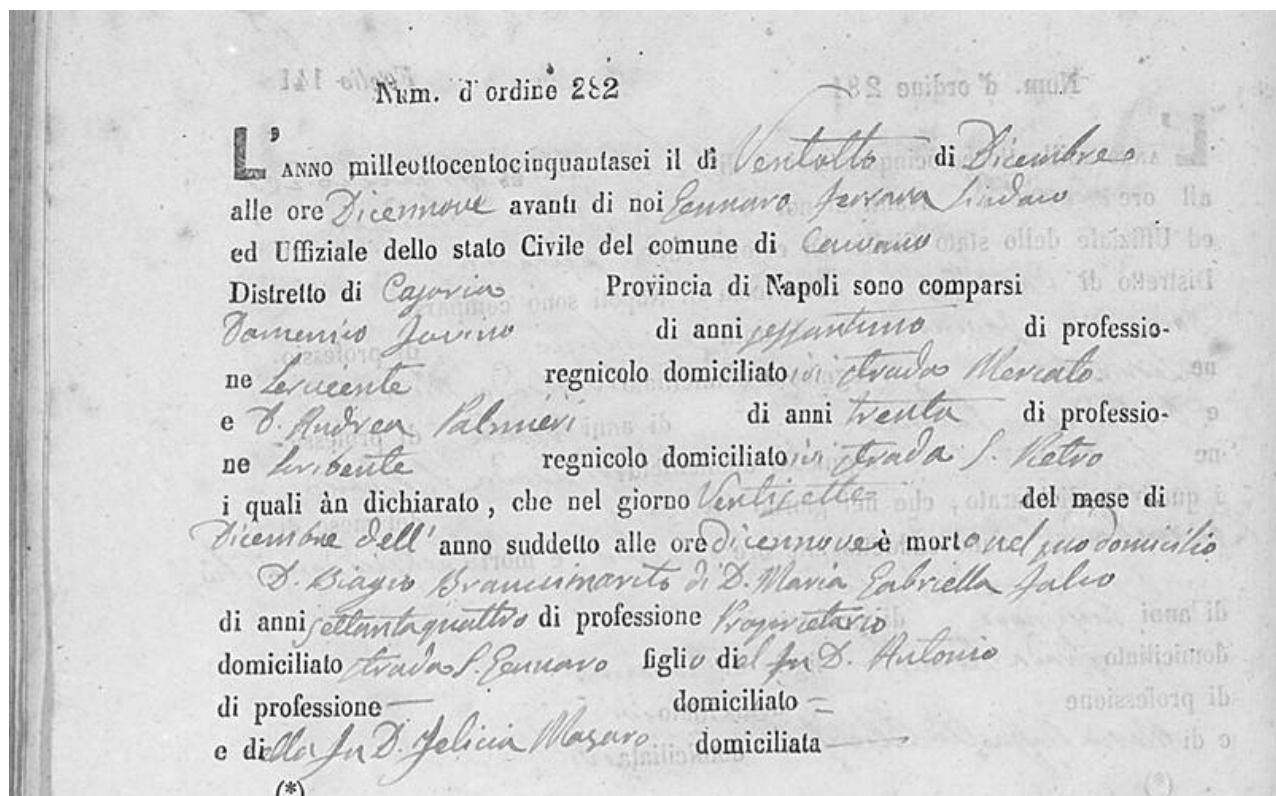 Num. d'ordine 282
L'ANNO milleottocentocinquantasei il dì Ventotto di Dicembre
alle ore Dicennove avanti di noi Gennaro Ferrara Sindaco
ed Uffiziale dello stato Civile del comune di Caivano
Distretto di Casoria Provincia di Napoli sono comparsi
Domenico di anni sessantuno di professio-
ne Serviente regnicolo domiciliato in strada Mercato
e D. Andrea Palmieri di anni trenta di professio-
ne Scribente regnicolo domiciliato in strada S. Pietro
i quali àn dichiarato, che nel giorno Ventisette del mese di
Dicembre dell'anno suddetto alle ore dicennove è morto nel suo domicilio
D. Biagio marito di D. Maria Gabriella
di anni settantaquattro di professione Proprietario
domiciliato strada S. Gennaro figlio del fu D. Antonio
di professione — domiciliato =
e della fu D. Felicia domiciliata —
(*)